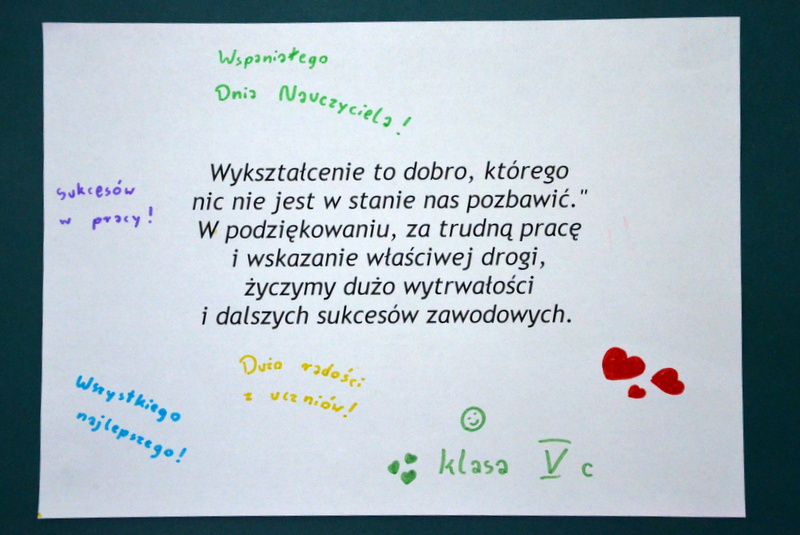 Wspaniałego
Dnia Nauczyciela!
Wykształcenie to dobro, którego
nic nie jest w stanie nas pozbawić."
W podziękowaniu, za trudną pracę
i wskazanie właściwej drogi,
życzymy dużo wytrwałości
i dalszych sukcesów zawodowych.
sukcesów
w pracy!
Dużo radości
z uczniów!
Wszystkiego
najlepszego!
klasa V c